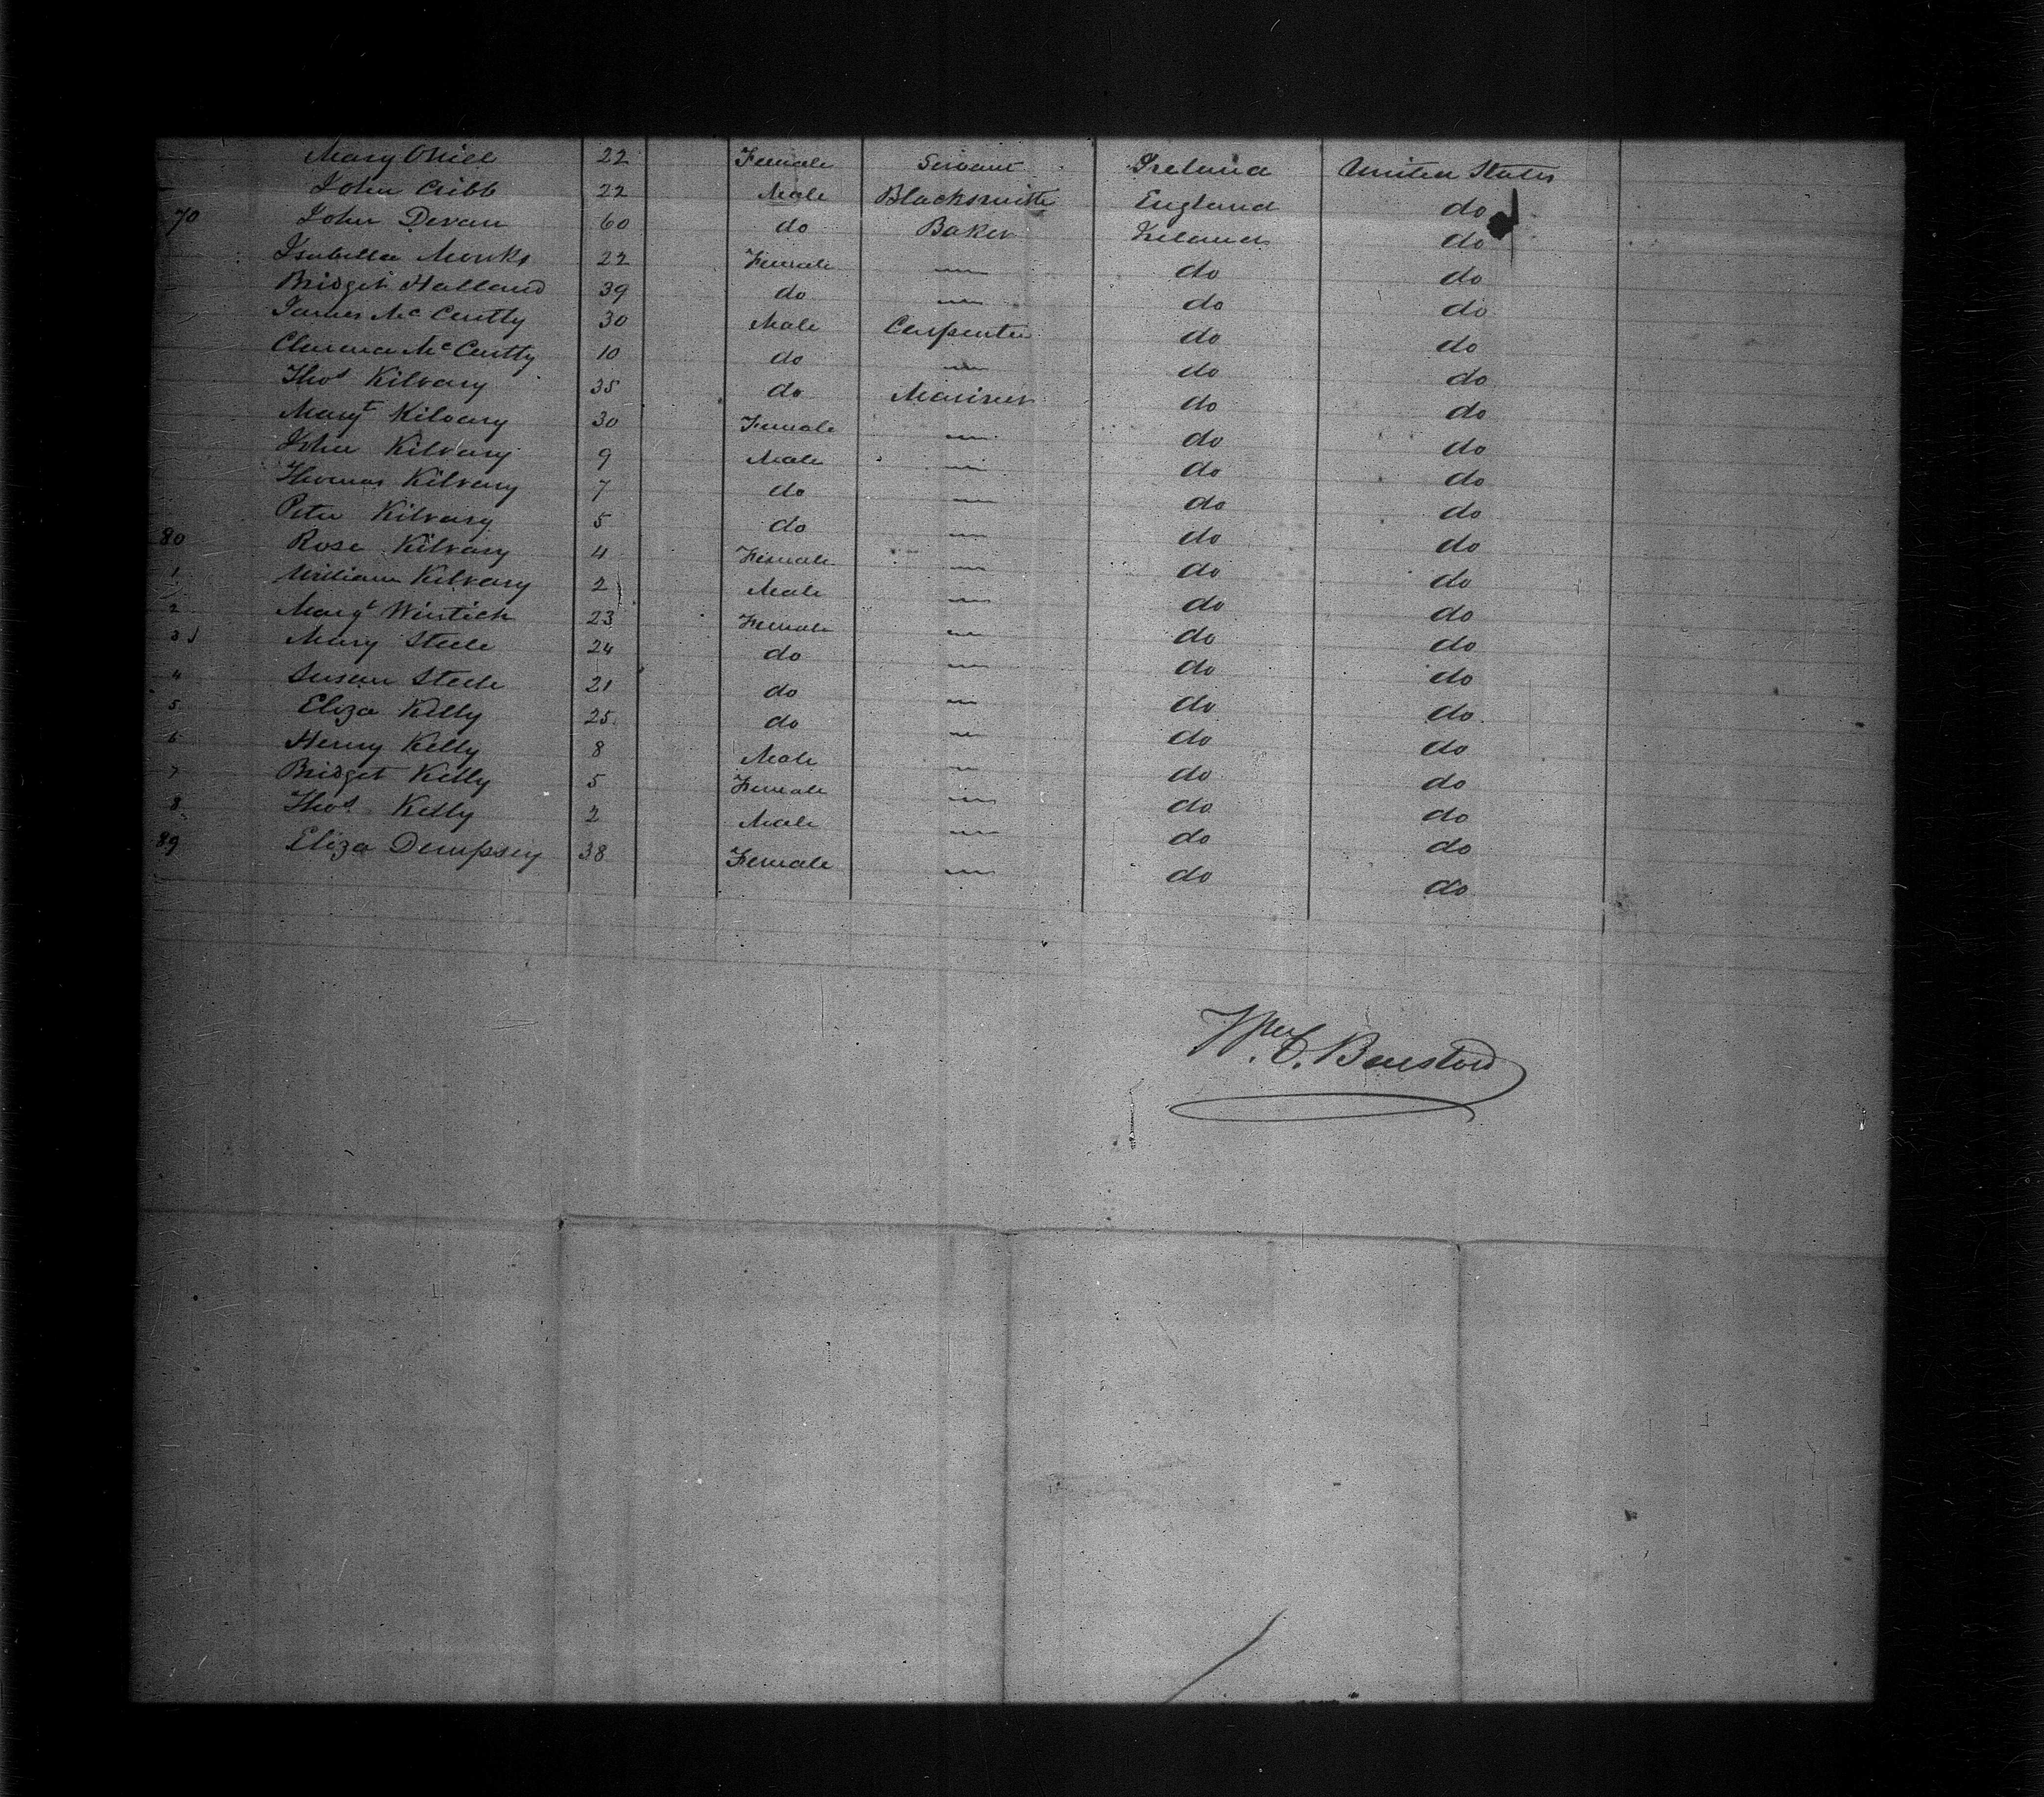 Mary ONiel 22 Female Servant Ireland United States
John Cribb 22 Male Blacksmith England do
70 John Devan 60 do Baker Ireland do
Isabella Monks 22 Female — do do
Bridget Halland 39 do — do do
James McCentty 30 Male Carpenter do do
McCentty 10 do — do do
Thos Kilvary 35 do Mariner do do
Margt Kilvary 30 Female — do do
John Kilvary 9 Male — do do
Thomas Kilvary 7 do — do do
Peter Kilvary 5 do — do do
80 Rose Kilvary 4 Female — do do
1 William Kilvary 2 Male — do do
2 Margt Wintich 23 Female — do do
3 Mary Steele 24 do — do do
4 Susan Steele 21 do — do do
5 Eliza Kelly 25 do — do do
6 Henry Kelly 8 Male — do do
7 Bridget Kelly 5 Female — do do
8 Thos Kelly 2 Male — do do
89 Eliza Dempsey 38 Female — do do
Wm C.